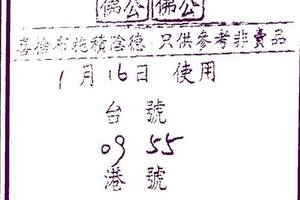 佛公 佛公
喜捨布施積陰德 只供參考非賣品
1月16日 使用
台 號
09 55
港 號